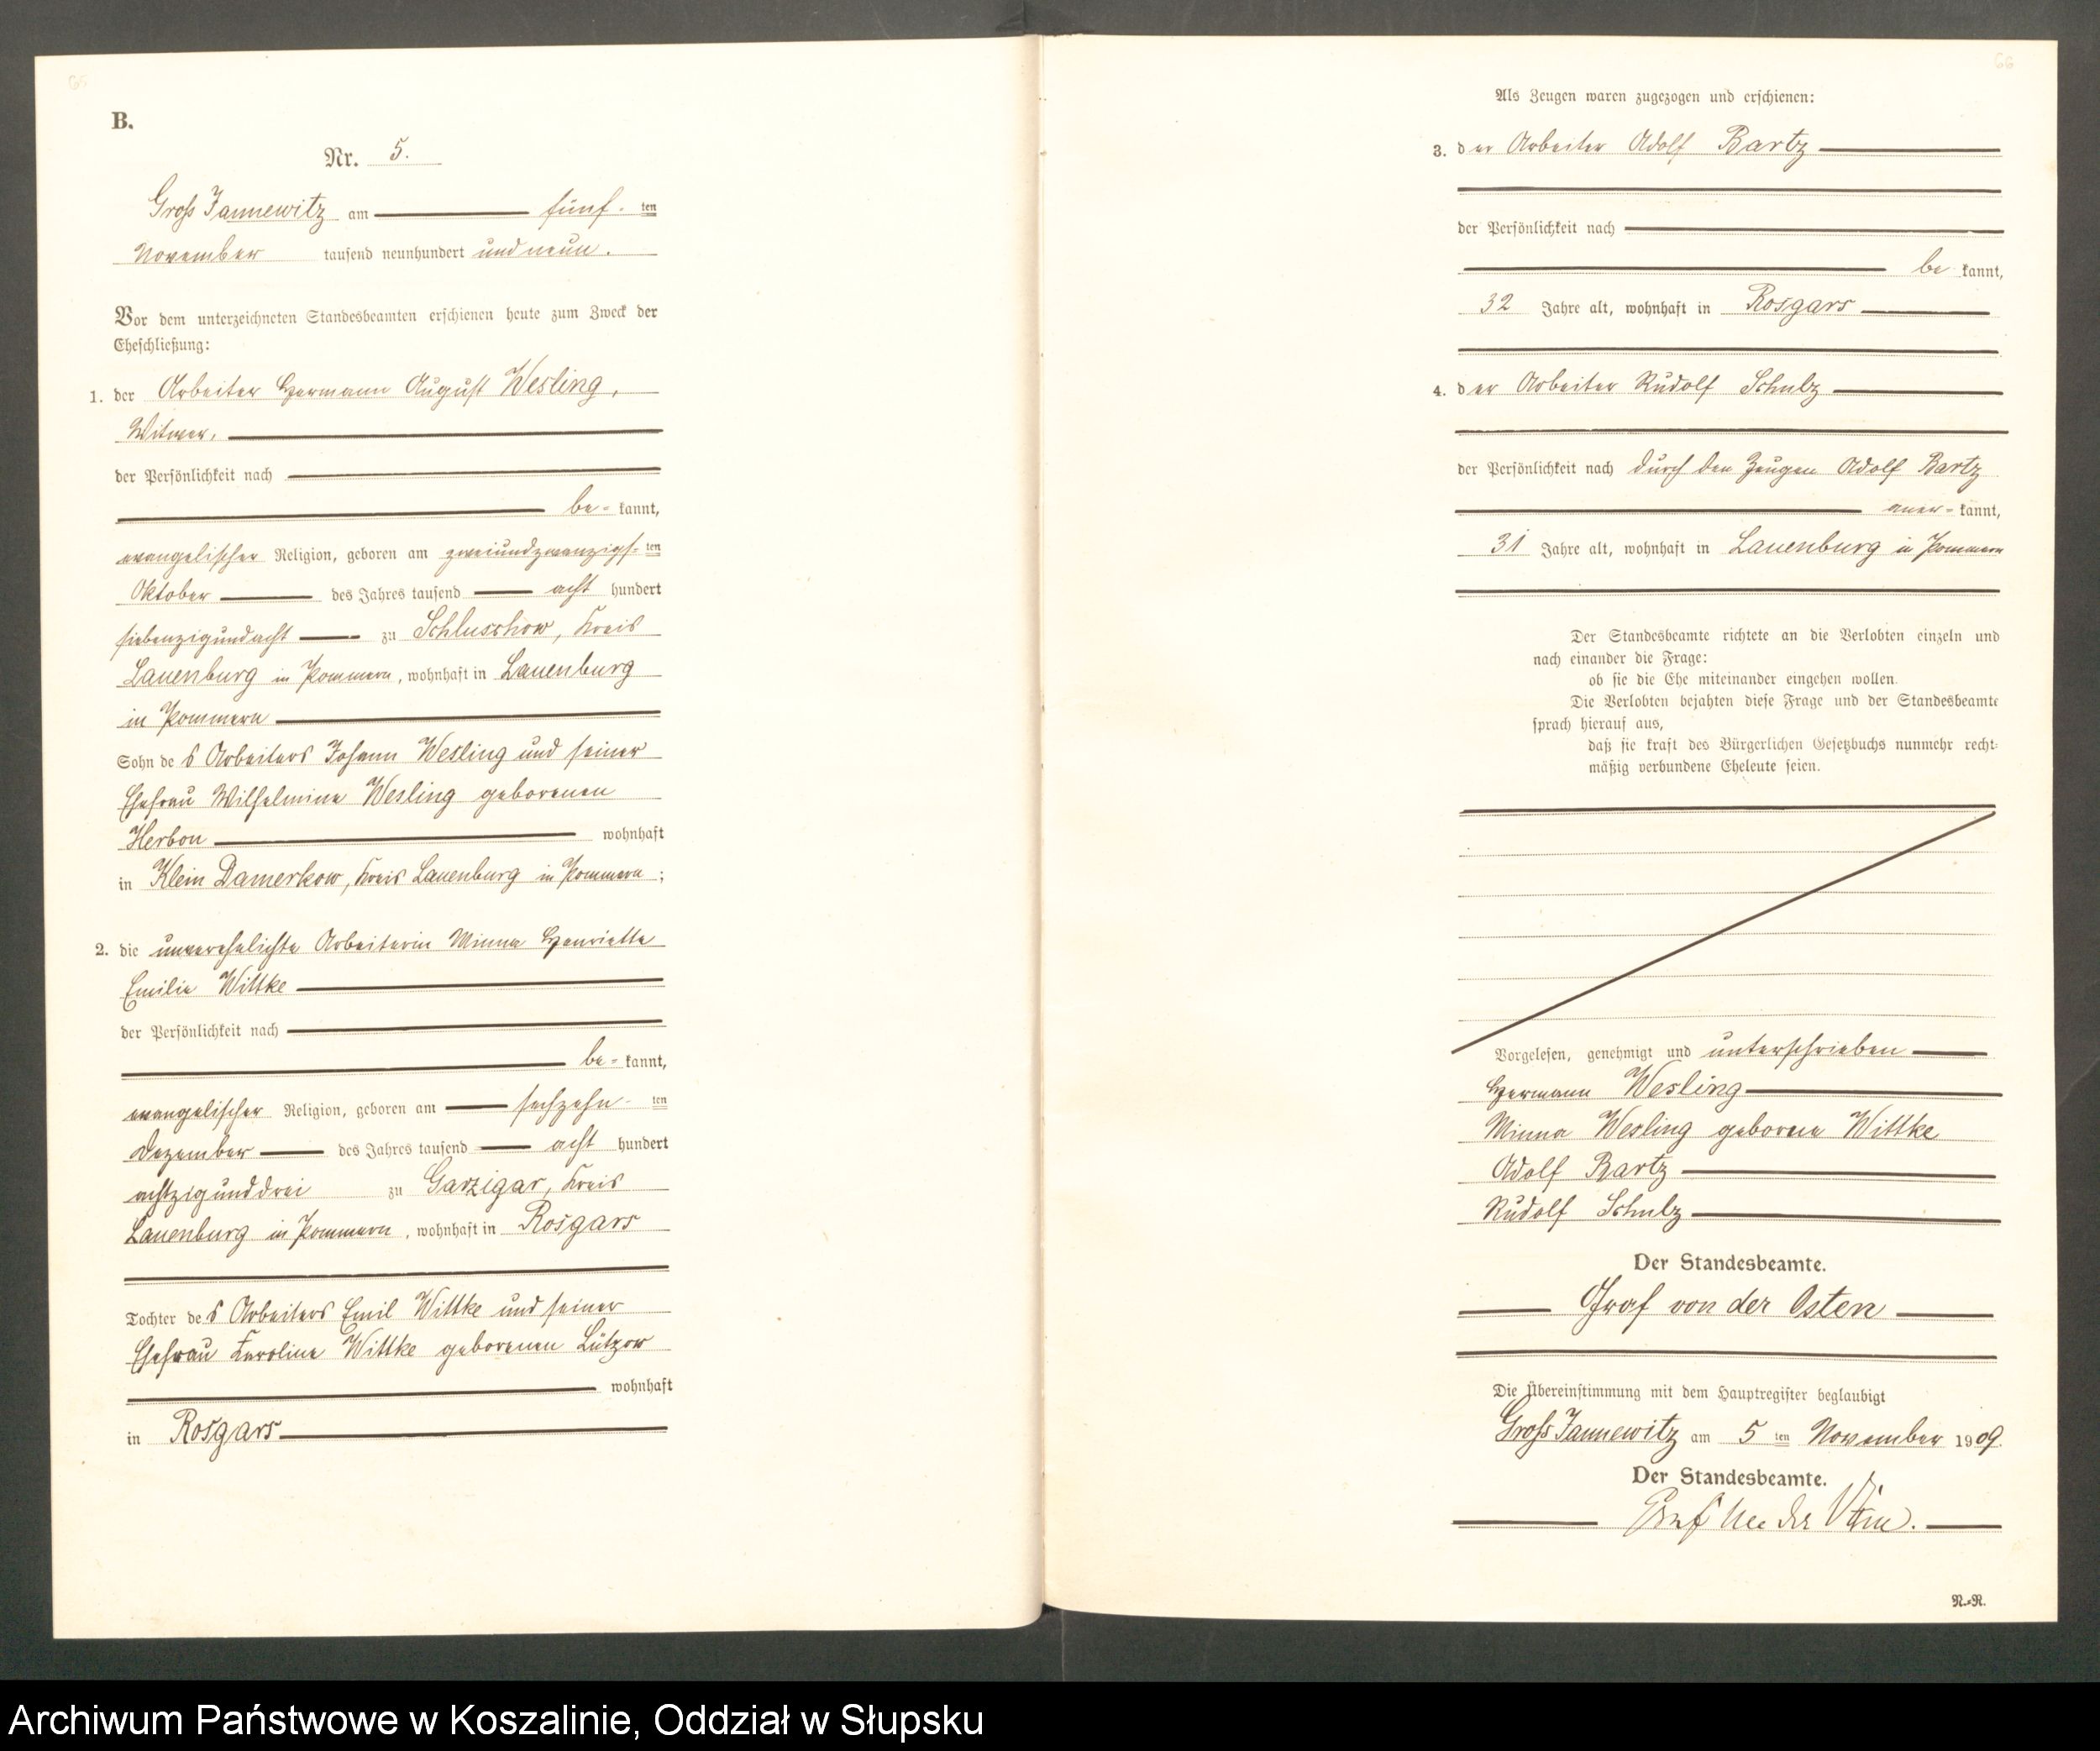 65
B.
Nr. 5.
Gross Jannewitz am fünf- ten
November tausend neunhundert und neun.
Vor dem unterzeichneten Standesbeamten erschienen heute zum Zweck der
Eheschließung:
1. der Arbeiter Hermann August Wesling,
Witwer,
der Persönlichkeit nach
be- kannt,
evangelischer Religion, geboren am zweiundzwanzigs- ten
Oktober des Jahres tausend acht hundert
siebenzigundacht zu Schluschow, Kreis
Lauenburg in Pommern, wohnhaft in Lauenburg
in Pommern
Sohn des Arbeiters Johann Wesling und seiner
Ehefrau Wilhelmine Wesling geborenen
Herbon wohnhaft
in Klein Damerkow, Kreis Lauenburg in Pommern;
2. die unverehelichte Arbeiterin Minna Henriette
Emilie Wittke
der Persönlichkeit nach
be- kannt,
evangelischer Religion, geboren am sechzehn- ten
Dezember des Jahres tausend acht hundert
achtzigunddrei zu Garzigar, Kreis
Lauenburg in Pommern, wohnhaft in Rosgars
Tochter des Arbeiters Emil Wittke und seiner
Ehefrau Karoline Wittke geborenen Lützow
wohnhaft
in Rosgars
66
Als Zeugen waren zugezogen und erschienen:
3. der Arbeiter Adolf Bartz
der Persönlichkeit nach
be kannt,
32 Jahre alt, wohnhaft in Rosgars
4. der Arbeiter Rudolf Schulz
der Persönlichkeit nach durch den Zeugen Adolf Bartz
aner- kannt,
31 Jahre alt, wohnhaft in Lauenburg in Pommern
Der Standesbeamte richtete an die Verlobten einzeln und
nach einander die Frage:
ob sie die Ehe miteinander eingehen wollen.
Die Verlobten bejahten diese Frage und der Standesbeamte
sprach hierauf aus,
daß sie kraft des Bürgerlichen Gesetzbuchs nunmehr recht-
mäßig verbundene Eheleute seien.
Vorgelesen, genehmigt und unterschrieben
Hermann Wesling
Minna Wesling geborene Wittke
Adolf Bartz
Rudolf Schulz
Der Standesbeamte.
Graf von der Osten
Die Übereinstimmung mit dem Hauptregister beglaubigt
Gross Jannewitz am 5 ten November 1909.
Der Standesbeamte.
Graf von der Osten.
N.=R.
Archiwum Państwowe w Koszalinie, Oddział w Słupsku